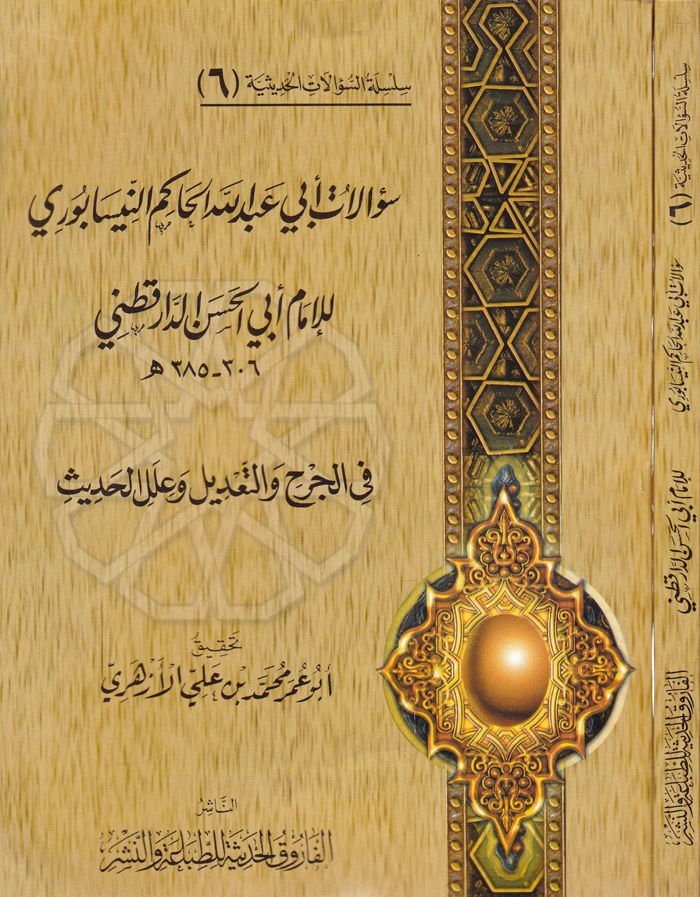 سِلْسِلَةُ السُّؤَالَاتِ الحَدِيثِيَّةِ (٦)
سُؤَالَاتُ أَبِي عَبْدِ اللهِ الحَاكِمِ النَّيْسَابُورِي
للإِمَامِ أَبِي الحَسَنِ الدَّارَقُطْنِي
٣٠٦ - ٣٨٥ هـ
فِي الجَرْحِ وَالتَّعْدِيلِ وَعِلَلِ الحَدِيثِ
تَحْقِيقُ
أَبُو عُمَرَ مُحَمَّد بْنِ عَلِيّ الأَزْهَرِيّ
النَّاشِرُ
الفَارُوقُ الحَدِيثَةُ لِلطِّبَاعَةِ وَالنَّشْرِ
سِلْسِلَةُ السُّؤَالَاتِ الحَدِيثِيَّةِ (٦)
سُؤَالَاتُ أَبِي عَبْدِ اللهِ الحَاكِمِ النَّيْسَابُورِي
للإِمَامِ أَبِي الحَسَنِ الدَّارَقُطْنِي
الفَارُوقُ الحَدِيثَةُ لِلطِّبَاعَةِ وَالنَّشْرِ